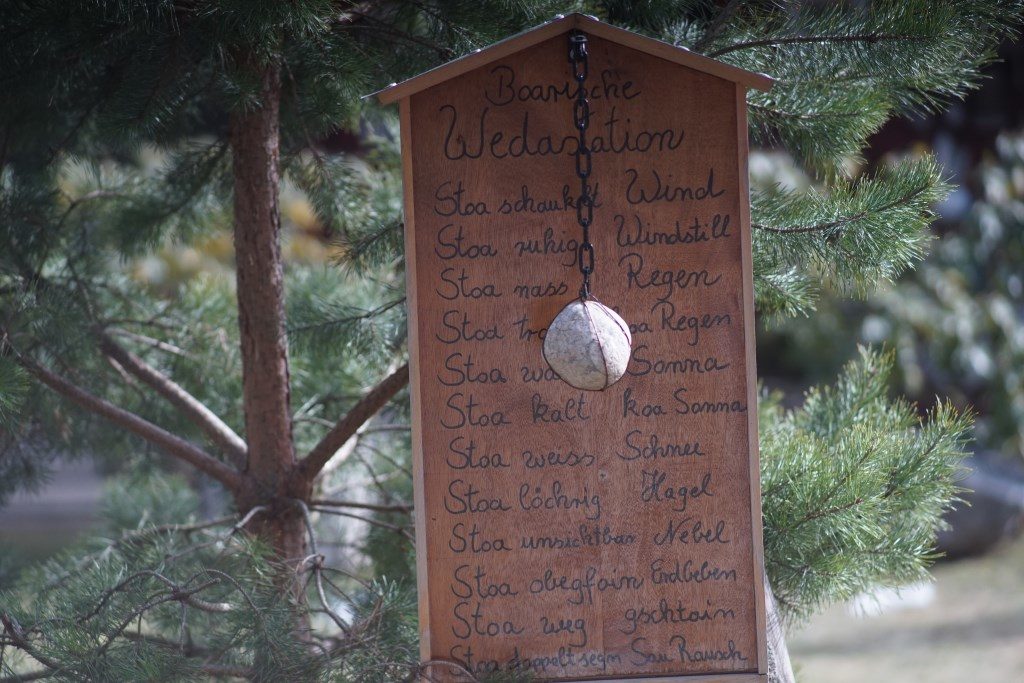 Boarische
Wedastation
Stoa schaukelt Wind
Stoa ruhig Windstill
Stoa nass Regen
Stoa Regen
Stoa Sonna
Stoa kalt koa Sonna
Stoa weiss Schnee
Stoa löchrig Hagel
Stoa unsichtbar Nebel
Stoa obegfoin Erdbeben
Stoa weg gschtoin
Stoa doppelt segn Sau Rausch